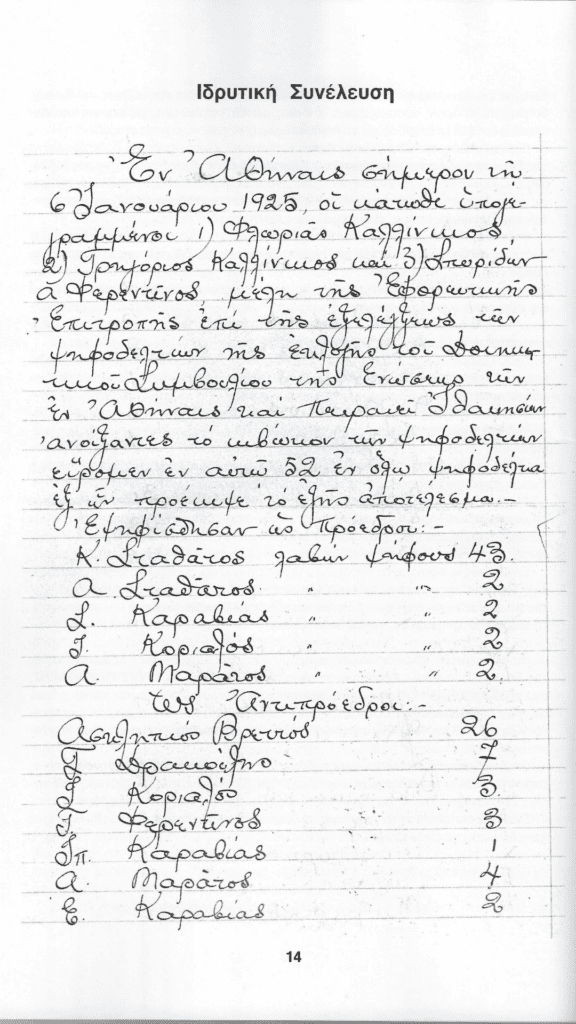 Ιδρυτική Συνέλευση
Ἐν Ἀθήναις σήμερον τῇ
6 Ἰανουάριου 1925, οἱ κάτωθι ὑπογε-
γραμμένοι 1) Φλωριᾶς Καλλίνικος,
2) Γρηγόριος Καλλίνικος καὶ 3) Σπυρίδων
Φερεντῖνος, μέλη τῆς Ἐφορευτικῆς
Ἐπιτροπῆς ἐπὶ τῆς ἐξελέγξεως τῶν
ψηφοδελτίων τῆς ἐκλογῆς τοῦ Διοικη-
τικοῦ Συμβουλίου τῆς Ἑνώσεως τῶν
ἐν Ἀθήναις καὶ Πειραιεῖ Ἰθακησίων
ἀνοίξαντες τὸ κιβώτιον τῶν ψηφοδελτίων
εὕρομεν ἐν αὐτῷ 52 ἐν ὅλῳ ψηφοδέλτια
ἐξ ὧν προέκυψε τὸ ἑξῆς ἀποτέλεσμα.-
Ἐψηφίσθησαν ὡς πρόεδροι:-
Κ. Σταθᾶτος λαβὼν ψήφους 43.
Α. Σταθᾶτος " " 2
Σ. Καραβίας " " 2
Γ. Κοριαλός " " 2
Α. Μαρᾶτος " " 2.
Ὡς Ἀντιπρόεδροι:-
Ασκληπιός Βρεττός 26
Δρακούλης 7
Κοριαλός 3
Γ. Φερεντῖνος 3
Σπ. Καραβίας 1
Α. Μαρᾶτος 4
Ε. Καραβίας 2
14